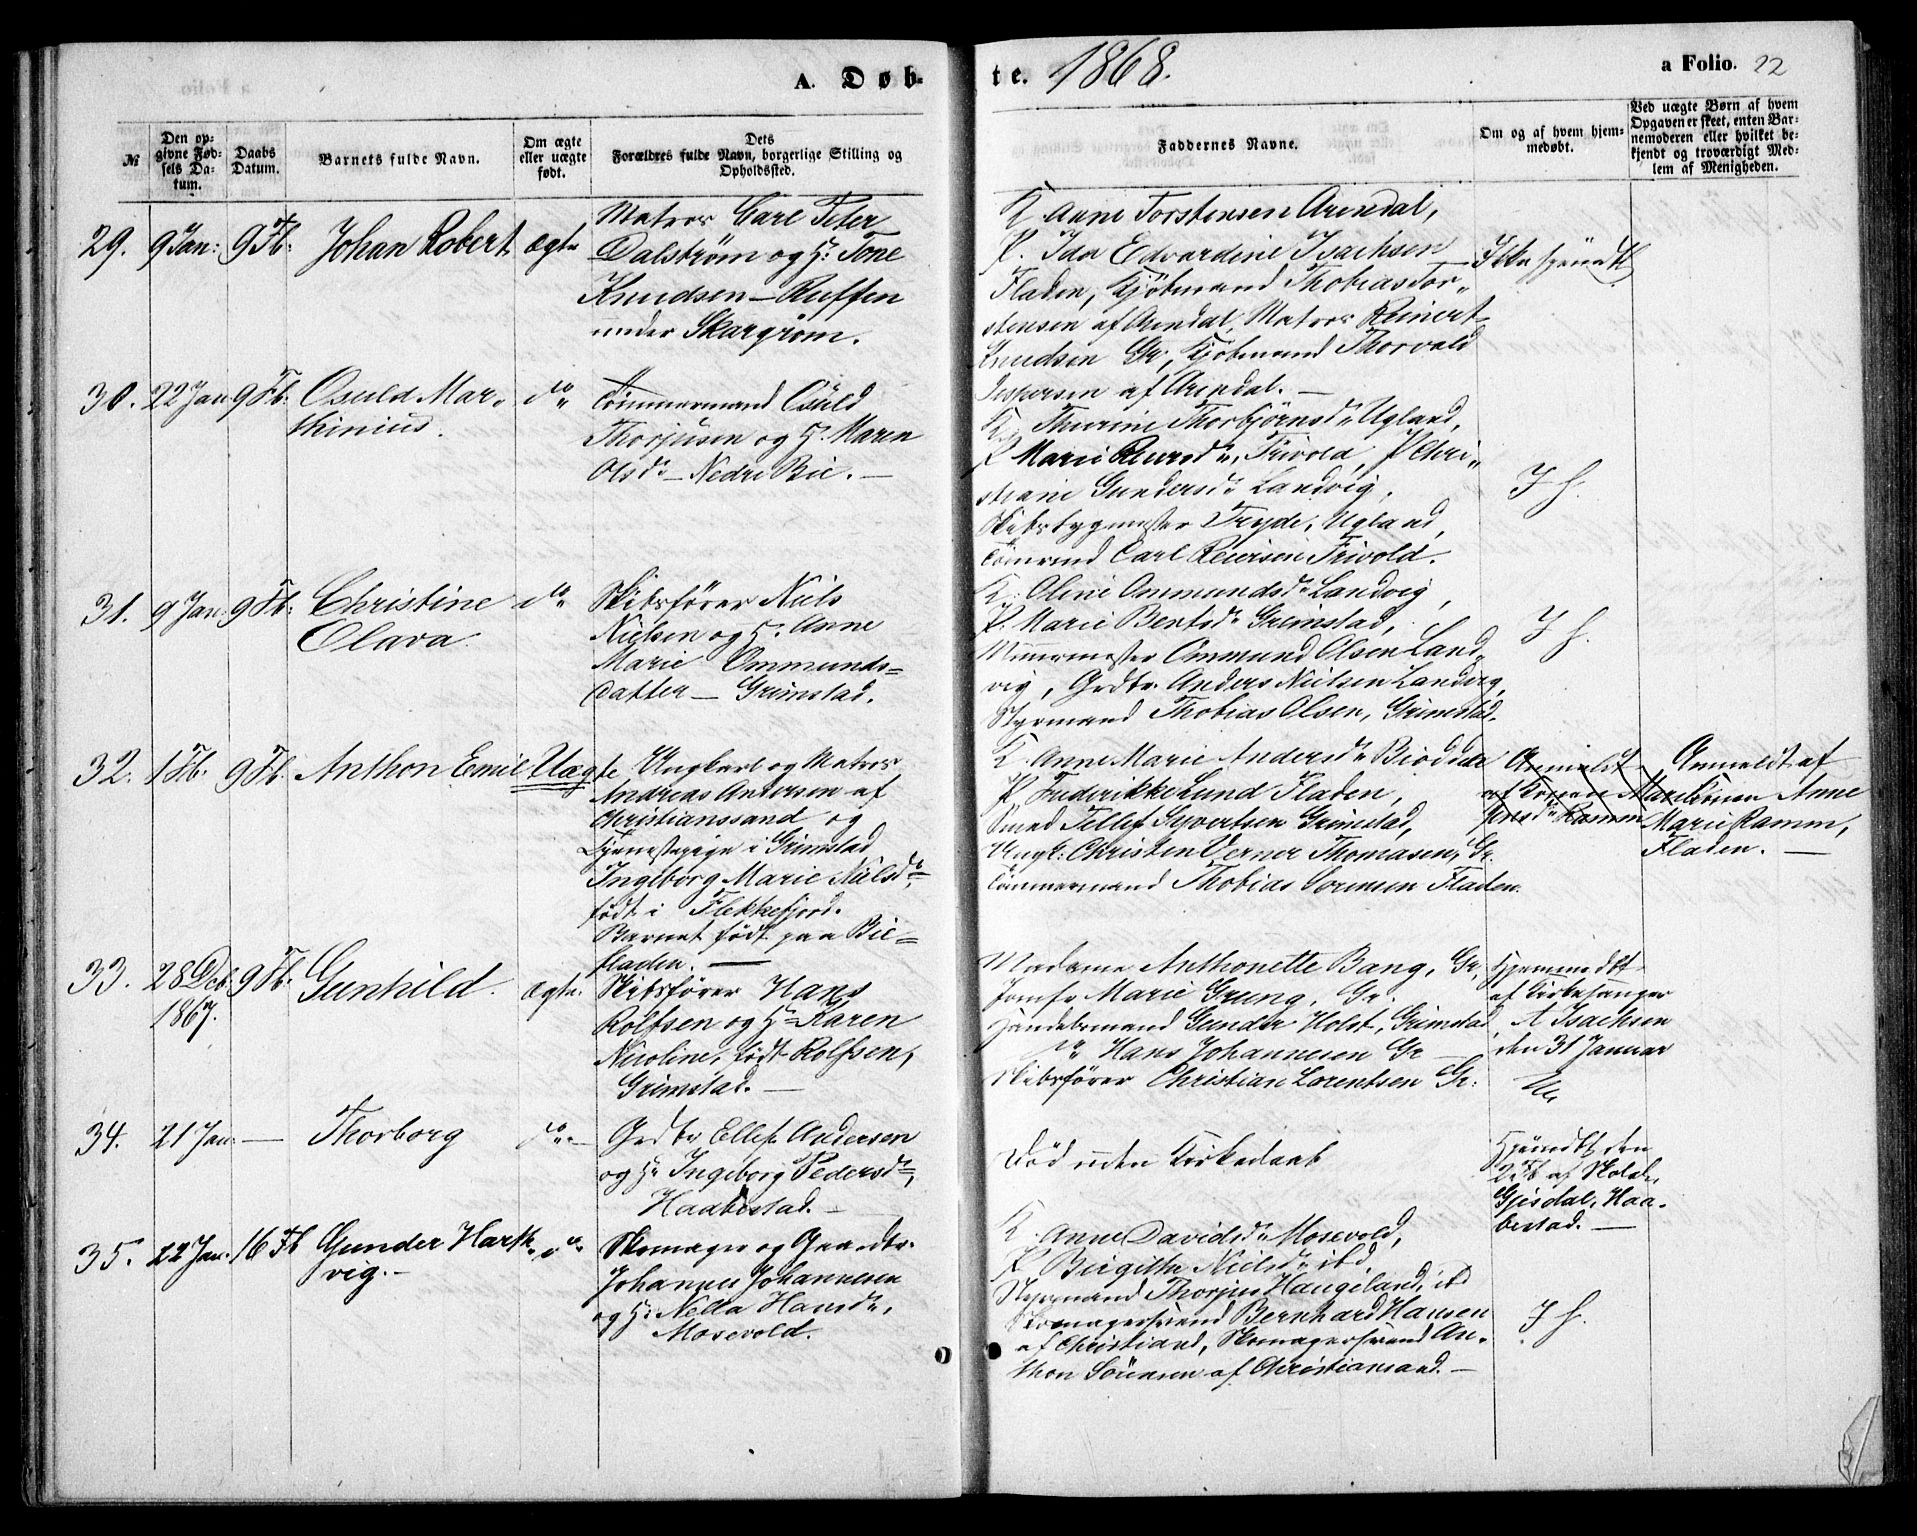 A. Døb-
te. 1868.
a Folio. 22
№
Den op-
givne Fød-
sels Da-
tum.
Daabs
Datum.
Barnets fulde Navn.
Om ægte
eller uægte
født.
Dets
Forældres fulde Navn, borgerlige Stilling og
Opholdssted.
Faddernes Navne.
Om og af hvem hjem-
medøbt.
Ved uægte Børn af hvem
Opgaven er skeet, enten Bar-
nemoderen eller hvilket be-
kjendt og troværdigt Med-
lem af Menigheden.
29. 9 Jan: 9 Fb: Johan Robert ægte
Matros Carl Peter
Dalstrøm og H: Tone
Knudsen – Ruffen
under Skargrøm.
K. Anne Torstensen Arendal,
P. Ida Edvardine Isachsen
Fladen, Kjøbmand Thobias Tor„
stensen af Arendal, Matros Reinert
Knudsen Gr, Kjøbmand Thorvald
Jespersen af Arendal. –
Ikke hjemdt
30. 22 Jan 9 Fb. Osuld Mar„
thinius. do
Tømmermand Osuld
Thorjusen og H. Maren
Olsdr – Nedre Bie. –
K. Thorine Thorbjørnsdr Ugland,
P Marie Reiersdr, Frivold, P Chri„
stiane Gundersdr Landvig,
Skibsbygmester Tryde, Ugland,
Tømmd Carl Reiersen Frivold.
I h.
31. 9 Jan: 9 Fb: Christine
Olava. do
Skibsfører Niels
Nielsen og H. Anne
Marie Ommunds=
datter – Grimstad.
K. Oline Ommundsdr Landvig,
P. Marie Berntsdr Grimstad,
Muurmester Ommund Olsen Land„
vig, Grdbr. Anders Nielsen Landvig,
Styrmand Thobias Olsen, Grimstad.
I h.
32. 1 Fb. 9 Fb. Anthon Emil Uægte
Ungkarl og Matros
Andreas Andersen af
Christianssand og
Tjenestepige i Grimstad
Ingeborg Marie Nielsdr,
født i Flekkefjord.
Barnet født paa Bie=
fladen. –
K. Anne Marie Andersdr Biodden
P. Frederikke Lund Fladen,
Smed Tellef Syvertsen Grimstad,
Ungk: Christen Verner Thomasen, Gr.
Tømmermand Thobias Sørensen Fladen.
Anmeldt
af Konen
Ramm
Anmeldt af
Anne
Marie Ramm,
Fladen. –
33. 28 Deb. 9 Fb. Gunhild. ægte.
1867.
Skibsfører Hans
Rolfsen og H. Karen
Nicoline, født Rolfsen,
Grimstad. –
Madame Anthonette Bang, Gr,
Jomfr Marie Grung, Gr.
Handelsmand Gunder Holst, Grimstad,
do Hans Johannesen Gr
Skibsfører Christian Lorentsen Gr.
Hjemmedbt
af Kirkesanger
A Isachsen
den 31 Januar
34. 21 Jan: – Thorborg do –
Grdbr Ellef Andersen
og H. Ingeborg Pedersdr,
Haabestad. –
Død uden Kirkedaab
Hjemdbt den
2 Fb af Skolel.
Gjesdal, Haa„
bestad. –
35. 22 Jan: 16 Fb Gunder Hart„
vig. – do
Skomager og Gaardbr.
Johannes Johannesen
og H. Nella Hansdr,
Mosevold.
K. Anne Davidsdr Mosevold,
P. Birgithe Nielsdr ibd,
Styrmand Thorjus Haugeland, ibd
Skomagersvend Bernhard Hansen
af Christiansd, Skomagersvend An„
thon Sørensen af Christiansand. –
I h.